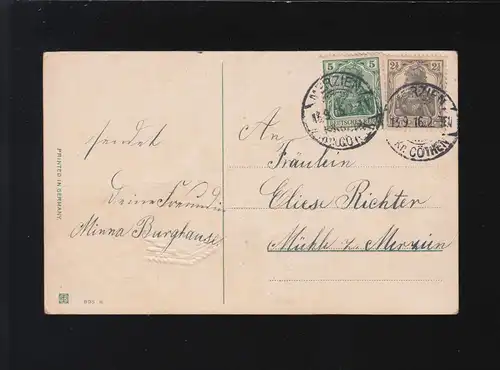 PRINTED IN GERMANY
sendet
Deine Freundin
Minna Burghause
5
DEUTSCHES
2½
MERZIEN
13.9.16
KR. CÖTHEN
MERZIEN
13.9.16
KR. CÖTHEN
An
Fräulein
Eliese Richter
Mühle b. Merzien